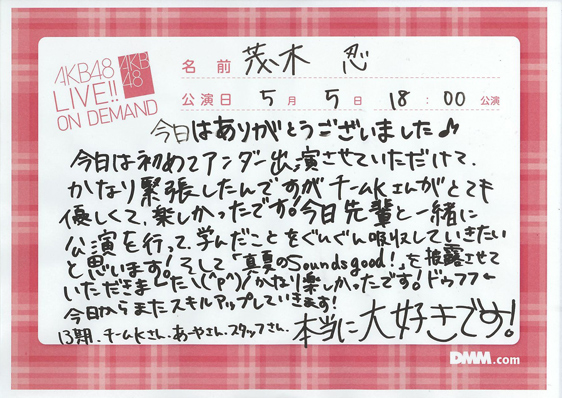 AKB48
LIVE!!
ON DEMAND
AKB
48
名前 茂木 忍
公演日 5月 5日 18:00 公演
今日はありがとうございました♪
今日は初めてアンダー出演させていただけて、
かなり緊張したんですがチームKさんがとても
優しくて、楽しかったです!今日先輩と一緒に
公演を行って、学んだことをぐんぐん吸収していきたい
と思います!そして「真夏のSounds good!」を披露させて
いただきましたヽ(´P^)/かなり楽しかったです!ドゥフフ←
今日からまたスキルアップしていきます!
13期、チームKさん、あーやさん、スタッフさん、本当に大好きです!
DMM.com